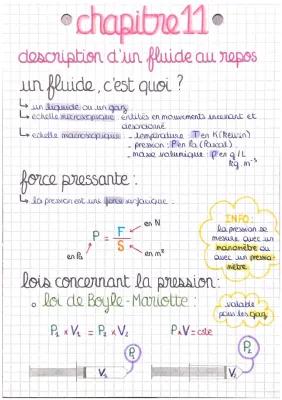 chapitre 11
description d'un fluide au repos
un fluide, c'est quoi ?
↳ un liquide ou un gaz
↳ echelle microscopique : entités en mouvements incessant et
désordonné
↳ echelle macroscopique : - température T en K (Kelvin)
- pression : P en Pa (Pascal)
- masse volumique : ρ en g/L
kg.m⁻³
force pressante :
↳ la pression est une force surfacique.
P = F/S
en N
en Pa
en m²
INFO :
la pression se
mesure avec un
manomètre ou
avec un pressio-
mètre.
lois concernant la pression :
loi de Boyle-Mariotte :
valable
pour les gaz
P₁ × V₁ = P₂ × V₂
P×V = cste
P₁
V₁
P₂
V₂